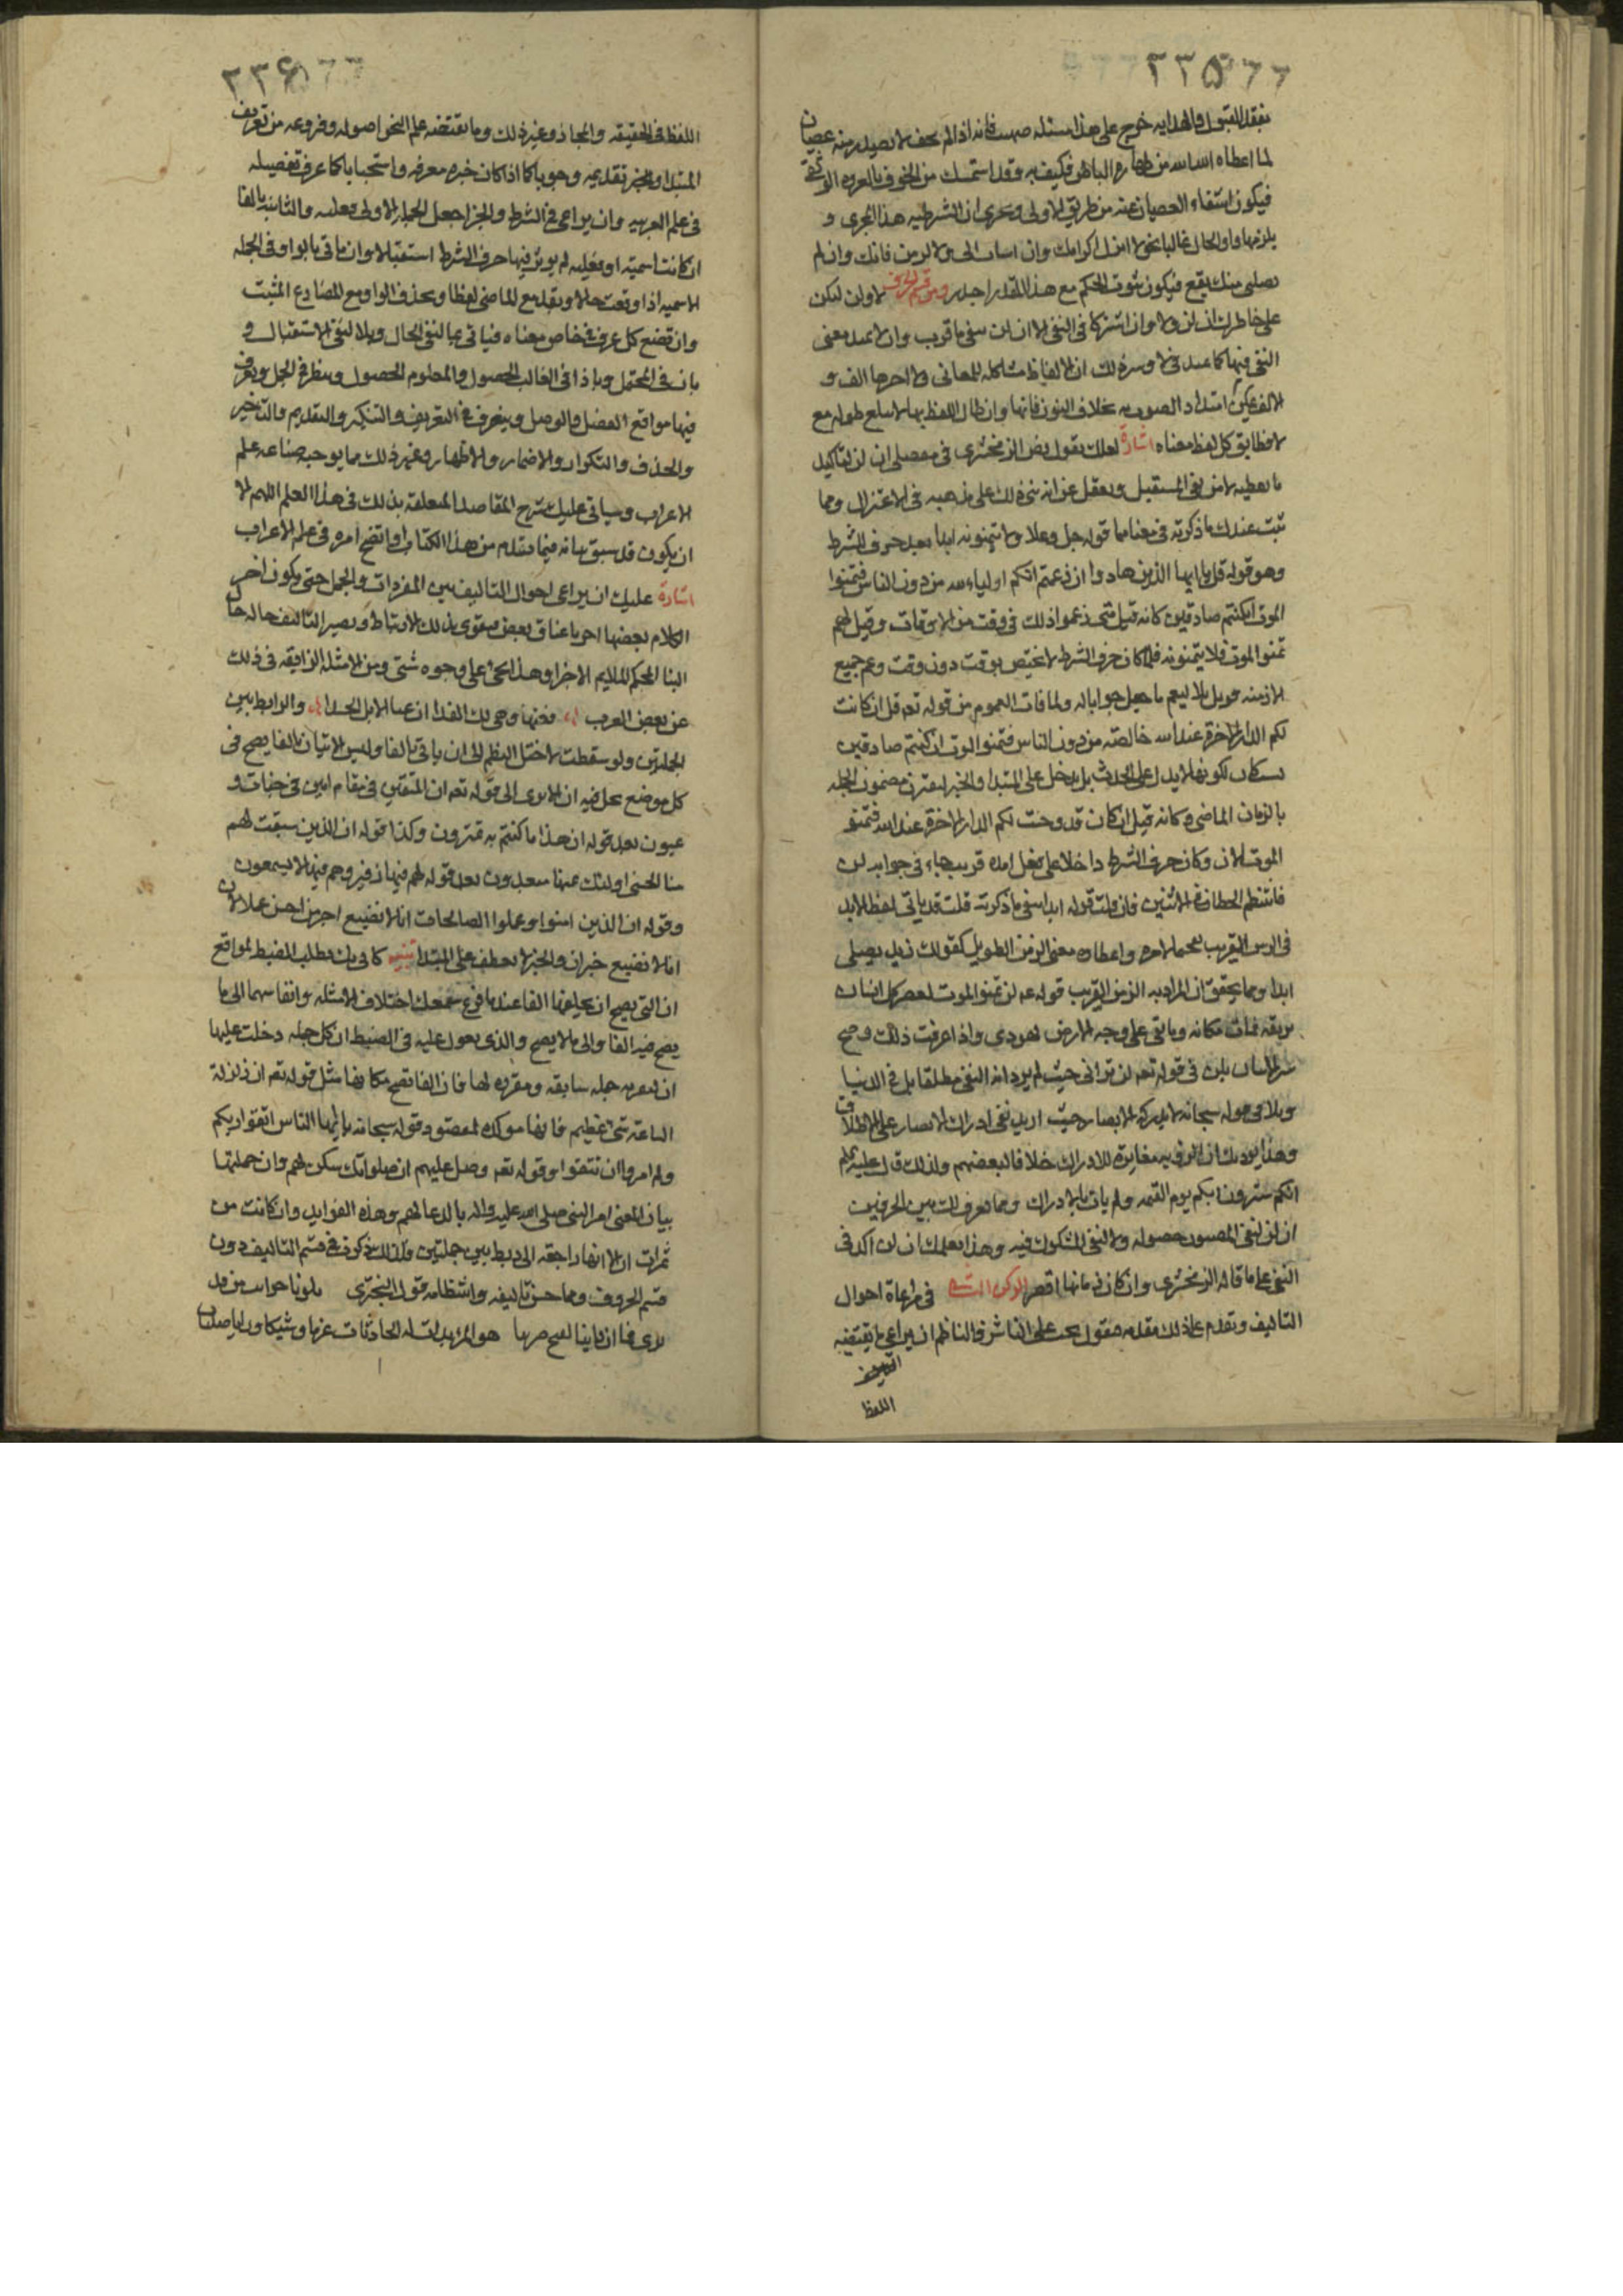 ٢٣٥
لما اعطاه الله من طهاره الباطن فكيف به وقد استمسك من الخوف بالعروه الوثقى
فيكون انتفاء العصيان عنه من طريق الاولى وتجرى ان الشرطيه هذا المجرى و
يلزمها واو الحال غالبا نحو لا انزل اكرامك وان اسات الى ولا ازين فانك وان لم
تصلنى منك يقع فيكون ثبوت الحكم مع هذا التقدير اجدر ومن قسم الحروف لا ولن ليكن
على خاطرك ان لن ولا وان اشتركا فى النفى الا ان لن تنفى ما قرب ولا يمتد معنى
النفى فيها كما يمتد فى لا وسر ذلك ان الالفاظ مشاكله للمعانى ولا اخرها الف و
الالف يمكن امتداد الصوت به بخلاف النون فانها وان طال اللفظ بها لا تبلغ طوله مع
لا فطابق كل لفظ معناه اشارة لعلك تقول نص الزمخشرى فى مفصله ان لن لتاكيد
ما تعطيه لا من نفى المستقبل وتعقل عنه انه بنى ذلك على مذهبه فى الاعتزال ومما
يثبت عندك ما ذكرته فى معناهما قوله جل وعلا ولا يتمنونه ابدا بعد حرف الشرط
وهو قوله قل يا ايها الذين هادوا ان زعمتم انكم اولياء لله من دون الناس فتمنوا
الموت ان كنتم صادقين كانه قيل متى زعموا ذلك فى وقت من الاوقات وقيل لهم
تمنوا الموت فلا يتمنونه فلما كان حرف الشرط لا يختص بوقت دون وقت وعم جميع
الازمنه قوبل بلا ليعم ما جعل جوابا له ولما فات العموم من قوله تعه قل ان كانت
لكم الدار الاخرة عند الله خالصة من دون الناس فتمنوا الموت ان كنتم صادقين
بسكان لكونها لا يدل على الحدث بل يدخل على المبتدا والخبر ليقترن مضمون الجمله
بالزمان الماضى وكانه قيل ان كان قد وجبت لكم الدار الاخرة عند الله فتمنوا
الموت الان وكان حرف الشرط داخلا على فعل امده قريب جاء فى جوابه لن
فانتظم الخطاب فى الاثنين فان قلت قوله ابدا ينفى ما ذكرته قلت قد ياتى لفظ الابد
فى الزمن القريب واعطاه معنى الزمن الطويل كقولك زيد يصلى
ابدا ومما يحقق ان المراد به الزمن القريب قوله عم لن تمنوا الموت لغص كل انسان
بريقه فمات مكانه وما بقى على وجه الارض يهودى واذا عرفت ذلك وضح
بلن فى قوله تعه لن ترانى حيث لم يرد به النفى مطلقا بل فى الدنيا
وبلا فى قوله سبحانه لا تدركه الابصار حيث اريد نفى ادراك الابصار على الاطلاق
وهذا يؤذنك ان الرؤيه مغايرة للادراك خلافا لبعضهم ولذلك قال عليه السلم
انكم سترون ربكم يوم القيمه ولم يات بالادراك ومما تعرف الفرق بين الحرفين
ان لن لنفى المظنون حصوله ولا لنفى المشكوك فيه وهذا يعلمك ان لن اكد فى
النفى على ما قاله الزمخشرى وان كان زمانها اقصر الركن الثانى فى مراعاة احوال
التاليف وتقدم على ذلك مقدمه فنقول يجب على الناثر والناظم ان يراعى ما يقتضيه
اللفظ
٢٣٦
اللفظ فى الحقيقه والمجاز وغير ذلك وما يقتضيه علم النحو اصوله وفروعه من تعريف
المبتدا والخبر تقديمه وجوبا كما اذا كان خبره معرفه واستحبابا كما عرف تفصيله
فى علم العربيه وان يراعى فى الشرط والجزا جعل الجمله الاولى فعليه والثانيه بالفا
ان كانت اسميه او فعليه لم يوثر فيها حرف الشرط استقبالا وان ياتى بالواو فى الجمله
الاسميه اذا وقعت حالا وبقد مع الماضى لفظا وبحذف الواو مع المضارع المثبت
وان تضع كل حرف فى خاص معناه فياتى بما لنفى الحال وبلا لنفى الاستقبال و
بان فى المحتمل وباذا فى الغالب الحصول والمعلوم الحصول وينظر فى الجمل ويعرف
فيها مواقع الفصل والوصل ويتصرف فى التعريف والتنكير والتقديم والتاخير
والحذف والتكرار والاضمار والاظهار وغير ذلك مما يوجبه صناعه علم
الاعراب وسياتى عليك شرح المقاصد المتعلقه بذلك فى هذا العلم اللهم الا
ان يكون قد سبق بيانه فيما تقدم من هذا الكتاب او اتضح امره فى علم الاعراب
اشارة عليك ان يراعى احوال التاليف بين المفردات والجمل حتى يكون اجزا
الكلام بعضها اخذ باعناق بعض فيقوى بذلك الارتباط ويصير التاليف حاله حال
البنا المحكم الملايم الاجزا وهذا يجى على وجوه شتى ومن الامثله الرايقه فى ذلك
عن بعض العرب فغنها وهى لك الفدا ان غنا الابل الحدا والرابط بين
الجملتين ولو سقطت لاختل النظم الى ان ياتى بالفا وليس الاتيان بالفا يصح فى
كل موضع تحل فيه ان الا ترى الى قوله تعه ان المتقين فى مقام امين فى جنات و
عيون بعد قوله ان هذا ما كنتم به تمترون وكذا قوله ان الذين سبقت لهم
منا الحسنى اولئك عنها مبعدون بعد قوله لهم فيها زفير وهم فيها لا يسمعون
وقوله ان الذين امنوا وعملوا الصالحات انا لا نضيع اجر من احسن عملا لان
انا لا نضيع خبر ان والخبر لا يعطف على المبتدا تنبيه كانى بك تطلب الضبط لمواقع
ان التى يصح ان يخلفها الفا عندما قرع سمعك اختلاف الامثله وانقسامها الى ما
يصح فيه الفا والى ما لا يصح والذى يعول عليه فى الضبط ان كل جمله دخلت عليها
ان جمله سابقه ومقرره لها فان الفا تصح مكانها مثل قوله تعه ان زلزلة
الساعة شى عظيم فانها موكده لمقصود قوله سبحانه يا ايها الناس اتقوا ربكم
ولم امروا ان يتقوا وقوله تعه وصل عليهم ان صلواتك سكن لهم وان جملتها
بيان لمعنى امر النبى صلى الله عليه واله بالدعا لهم وهذه الفوايد وان كانت من
ثمرات ان الا انها راجعه الى ربط بين جملتين ولذلك تذكر فى قسم التاليف دون
قسم الحروف ومما حسن تاليفه وانتظامه قول البحترى بلونا ضرايب من قد
نرى فما ان راينا لفتح ضريبا هو المرء ابدت له الحادثات عزما وشيكا ورايا صليبا